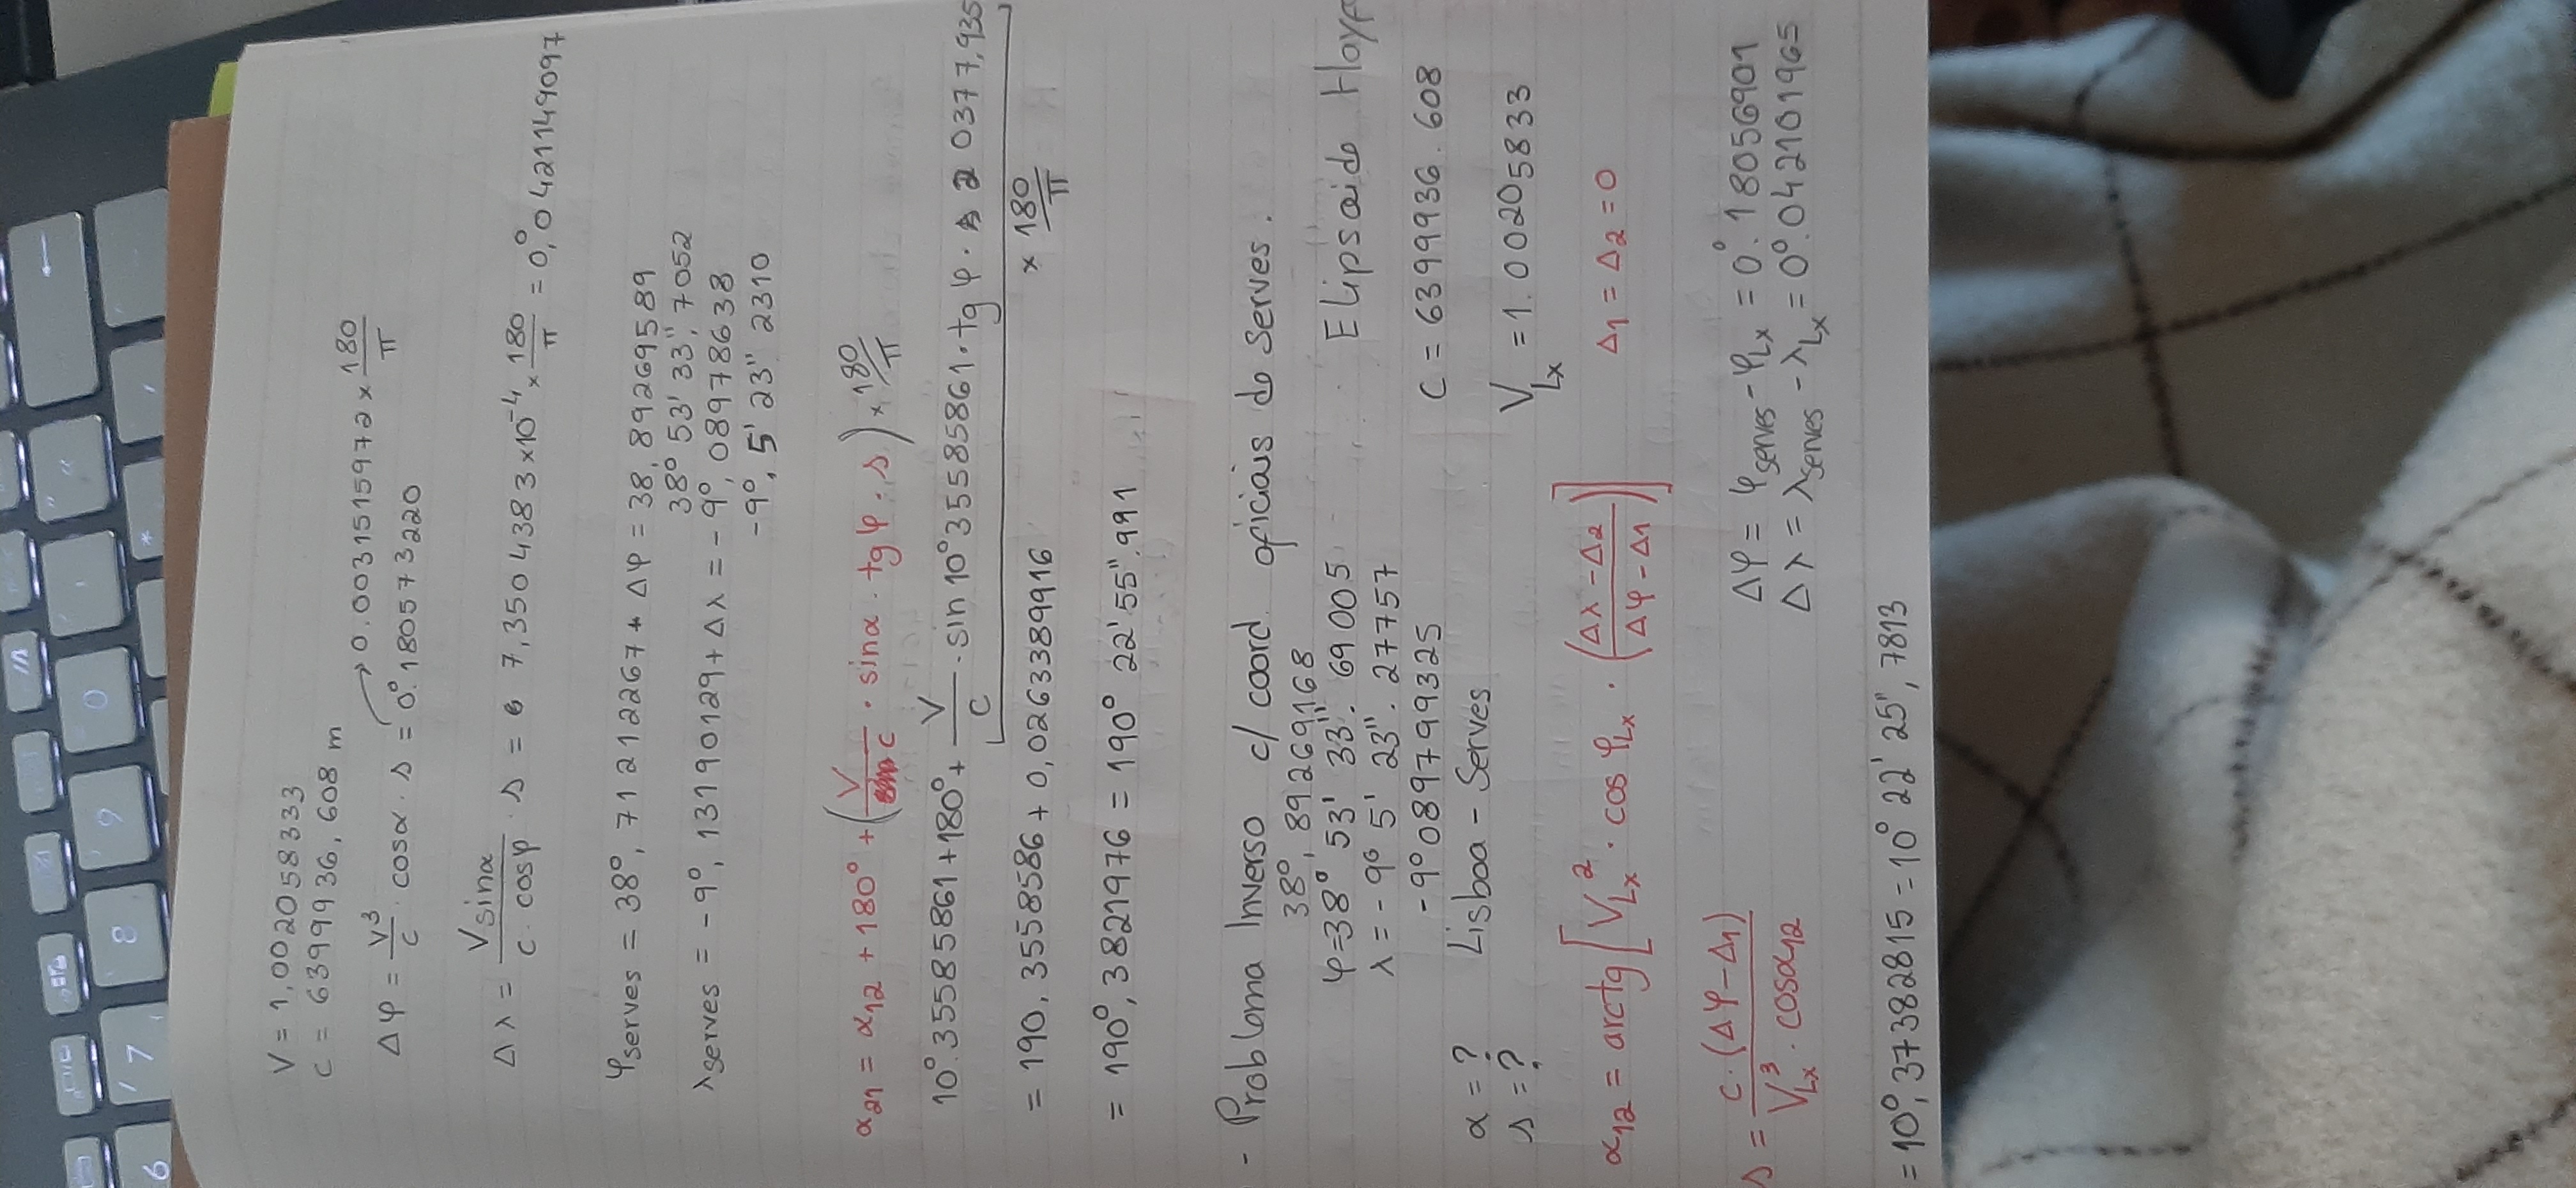 6 7 8 9 0
V = 1,002058333
c = 6399936,608 m
→ 0.0031515972 × 180/π
Δφ = V³/c · cosα · s = 0°.180573220
Δλ = V sinα / c. cosφ · s = 7,3504383×10⁻⁴ × 180/π = 0,°0421149097
φserves = 38°, 71212267 + Δφ = 38,89269589
38° 53' 33'', 7052
λserves = -9°, 13190129 + Δλ = -9°, 08978638
-9°, 5' 23'' 2310
α21 = α12 + 180° + (V/c · sinα · tg φ · s) × 180/π
10°.35585861 + 180° + V/c · sin 10°35585861 · tg φ · 20377,935
= 190,3558586 + 0,0263389916 × 180/π
= 190°,3821976 = 190° 22' 55''.991
- Probloma Inverso c/ coord. oficiais do Serves.
38°, 89269168
φ=38° 53' 33''. 69005
Elipsoido Hayf
λ = -9° 5' 23''. 27757
-9°089799325
c = 6399936.608
α = ? Lisboa - Serves
s = ?
V Lx = 1.00205833
α12 = arctg [V Lx² · cos φLx · (Δλ - Δ2 / Δφ - Δ1)] Δ1 = Δ2 = 0
s = c. (Δφ - Δ1) / V Lx³ · cosα12
Δφ = φserves - φLx = 0°.18056901
Δλ = λserves - λLx = 0°.042101965
= 10°,37382815 = 10° 22' 25'', 7813